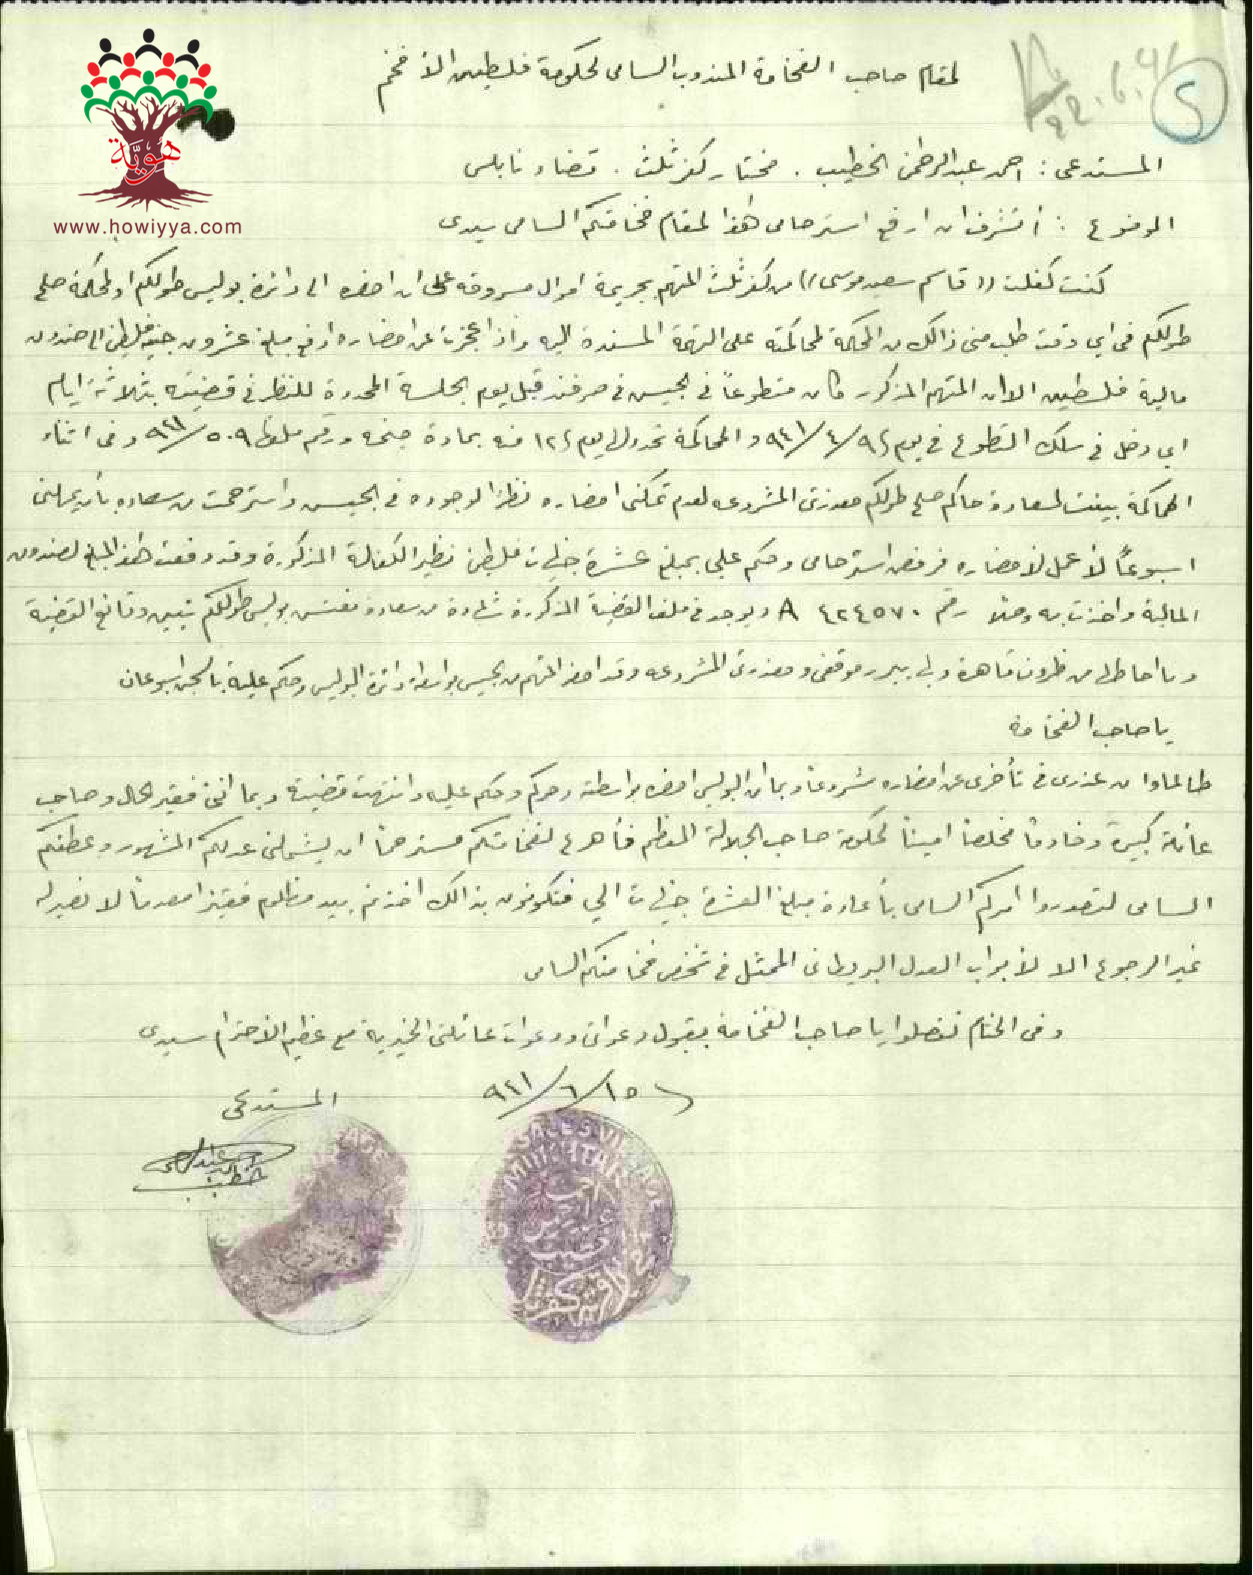 لمقام صاحب الفخامة المندوب السامي لحكومة فلسطين الأفخم
22.6.41
5
هوية
www.howiyya.com
المستدعي : احمد عبد الرحمن الخطيب . مختار كفر ثلث . قضاء نابلس
الموضوع : أتشرف ان ارفع استرحامي هذا لمقام فخامتكم السامي سيدي
كنت كفلت (( قاسم سعيد موسى )) من كفر ثلث المتهم بجريمة اموال مسروقه على ان احضره الى دائرة بوليس طولكرم او لمحكمة صلح
طولكرم في اي وقت طلب مني ذالك من المحكمة لمحاكمته على التهمة المسندة اليه واذا عجزت عن احضاره ادفع مبلغ عشرون جنيه فلسطيني الى صندوق
مالية فلسطين الا ان المتهم المذكور كان متطوعاً في الجيش في صرفند قبل يوم الجلسة المحدودة للنظر في قضيته بثلاثة ايام
اي دخل في سلك التطوع في يوم ٩ / ٤ / ٩٤١ و المحاكمة تحدد لها يوم ١٢ منه بمادة جنحه ورقم ملفها ٥٠٩ / ٩٤١ وفي اثناء
المحاكمة بينت لسعادة حاكم صلح طولكرم معذرتي المشروعه لعدم تمكني احضاره نظراً لوجوده في الجيش واسترحمت من سعاده بأن يمهلني
اسبوعاً لأعمل لاحضاره فرفض استرحامي وحكم علي بمبلغ عشرة جنيهات فلسطيني نظير الكفالة المذكورة وقد دفعت هذا المبلغ لصندوق
المالية واخذت به وصلا رقم ٤٢٤٥٧٠ A ويوجد في ملف القضية المذكورة شهادة من سعادة مفتش بوليس طولكرم تبين وقائع القضية
وما احاط بها من ظروف قاهرة وبما يبرر موقفي ومعذرتي المشروعه وقد احضر المتهم من الجيش بواسطة دائرة البوليس وحكم عليه بالسجن اسبوعان
يا صاحب الفخامة
طالما وان عذري في تأخري عن احضاره مشروعاً وبما ان البوليس احضره بواسطته وحوكم وحكم عليه وانتهت قضيته وبما انني فقير الحال وصاحب
عائلة كبيرة وخادماً مخلصاً اميناً لحكومة صاحب الجلالة المعظم فأهرع لفخامتكم مسترحماً ان يشملني عدلكم المشهور وعطفكم
السامي لتصدروا امركم السامي بأعادة مبلغ العشرة جنيهات الي فتكونون بذالك اخذتم بيد مظلوم فقيراً معدماً لا نصير له
غير الرجوع الا لأبواب العدل البريطاني الممثل في شخص فخامتكم السامي
وفي الختام تفضلوا يا صاحب الفخامة بقبول دعواتي ودعوات عائلتي الخيرية مع عظيم الاحترام سيدي
١٥ / ٦ / ٩٤١
المستدعي
احمد عبد الرحمن
الخطيب